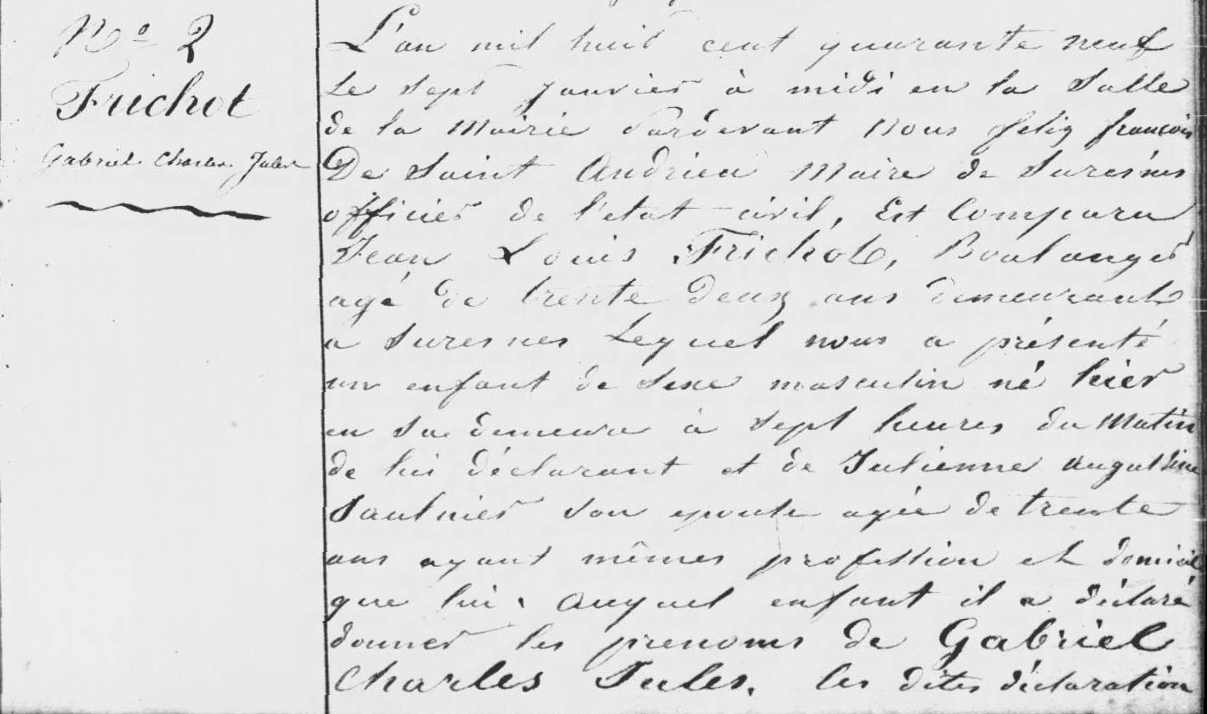 No 2
Frichot
Gabriel Charles Jules
L'an mil huit cent quarante neuf
Le sept Janvier à midi en la Salle
de la Mairie Pardevant Nous felix françois
De Saint Andrieu Maire de Suresnes
officier de l'etat civil, Est Comparu
Jean Louis Frichot, Boulanger
agé de trente deux ans demeurant
a Suresnes Lequel nous a présenté
un enfant de Sexe masculin né hier
en Sa demeure à Sept heures du Matin
de lui déclarant et de Julienne Augustine
Saulnier Son epouse agée de trente
ans ayant mêmes profession et domicile
que lui. Auquel enfant il a déclaré
donner les prenoms de Gabriel
Charles Jules. Les dites déclaration